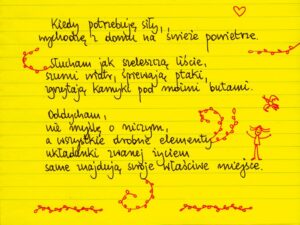 Kiedy potrzebuję siły,
wychodzę z domu na świeże powietrze.
Słucham jak szeleszczą liście,
szumi wiatr, śpiewają ptaki,
zgrzytają kamyki pod moimi butami.
Oddycham,
nie myślę o niczym,
a wszystkie drobne elementy
układanki zwanej życiem
same znajdują swoje właściwe miejsce.